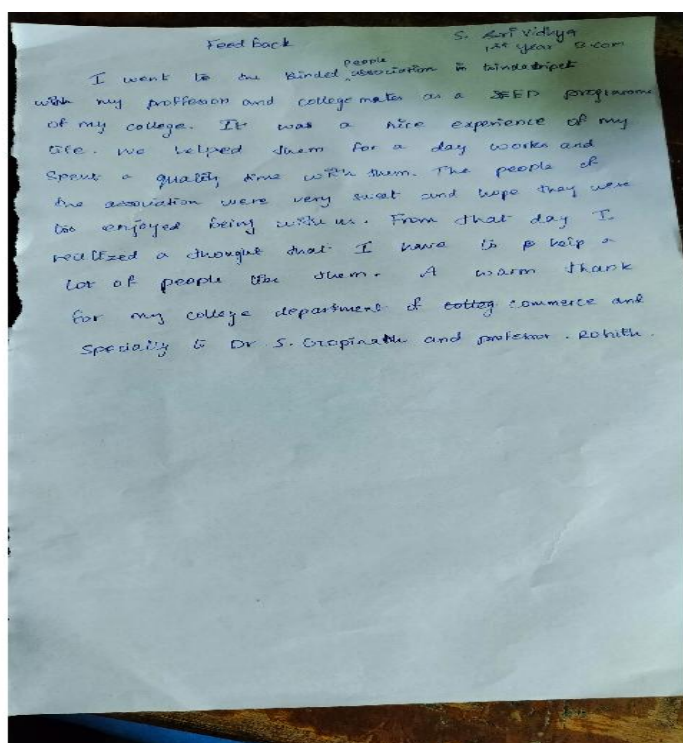 Feed back
S. Sri Vidhya
1st year B.com
I went to the Binded people association in
with my proffesson and college mates as a SEED programme
of my college. It was a nice experience of my
life. we helped them for a day works and
Spent a quality time with them. The people of
the association were very sweet and hope they were
too enjoyed being with us. From that day I
realized a thought that I have to help a
lot of people like them. A warm thank
for my college department of commerce and
Specially to Dr S. Gopinath and professor. Rohith.